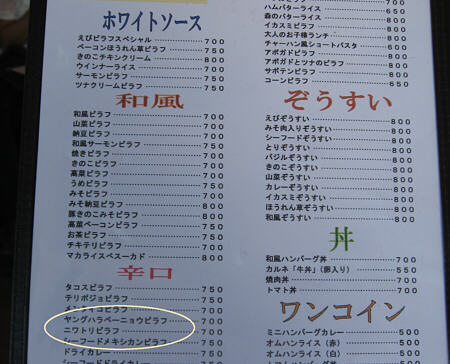 ホワイトソース
えびピラフスペシャル 700
ベーコンほうれん草ピラフ 750
きのこチキンクリーム 800
ウインナーライス 700
サーモンピラフ 750
ツナクリームピラフ 750
和風
和風ピラフ 700
山菜ピラフ 700
納豆ピラフ 700
和風サーモンピラフ 750
焼きピラフ 700
きのこピラフ 700
高菜ピラフ 700
うめピラフ 750
みそピラフ 700
みそ納豆ピラフ 800
豚きのこみそピラフ 800
高菜ベーコンピラフ 750
お茶ピラフ 700
チキテリピラフ 700
マカライスペスーカド 800
辛口
タコスピラフ 750
テリポジョピラフ 750
700
ヤングハラペーニョウピラフ 700
ニワトリピラフ 700
シーフードメキシカンピラフ 750
ドライカレー
ハムバターライス 650
森のバターライス
イカスミピラフ
大人のお子様ランチ 800
チャーハン風ショートパスタ 600
アボガドピラフ
アボガドとツナのピラフ
サボテンピラフ
コーンピラフ 650
ぞうすい
えびぞうすい 800
みそ肉入りぞうすい 800
シーフードぞうすい 800
とりぞうすい 800
バジルぞうすい 800
きのこぞうすい 800
山菜ぞうすい 800
カレーぞうすい 800
イカスミぞうすい 800
ほうれん草ぞうすい 800
和風ぞうすい 800
丼
和風ハンバーグ丼 700
カルネ「牛丼」(卵入り) 550
焼肉丼 700
トマト丼 700
ワンコイン
ミニハンバーグカレー 500
オムハンライス(赤) 500
オムハンライス(白) 500